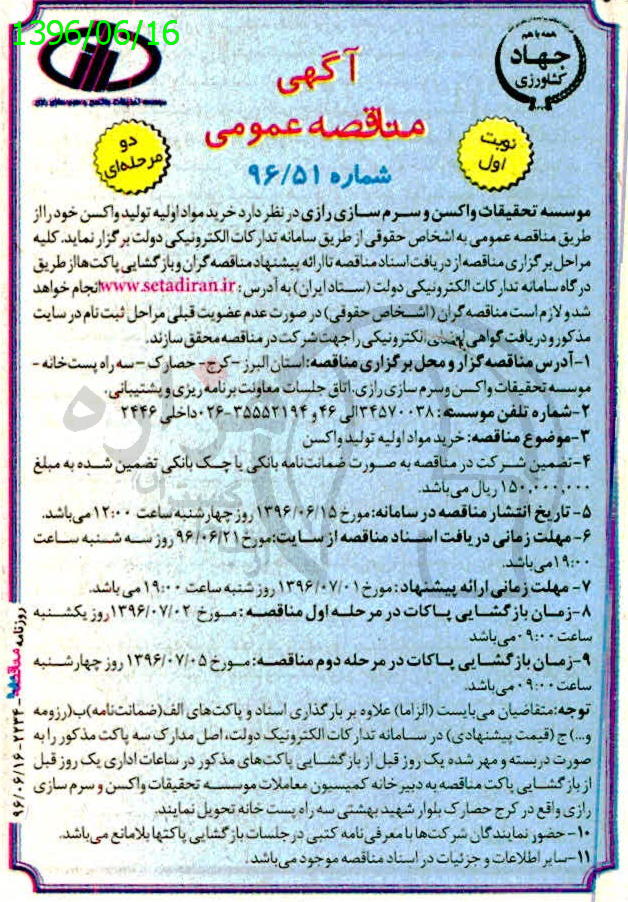 1396/06/16
همه با هم
جهاد
کشاورزی
موسسه تحقیقات واکسن و سرم سازی رازی
آگهی
مناقصه عمومی
شماره ۹۶/۵۱
نوبت
اول
دو
مرحله‌ای
موسسه تحقیقات واکسن و سرم سازی رازی در نظر دارد خرید مواد اولیه تولید واکسن خود را از
طریق مناقصه عمومی به اشخاص حقوقی از طریق سامانه تدارکات الکترونیکی دولت برگزار نماید. کلیه
مراحل برگزاری مناقصه از دریافت اسناد مناقصه تا ارائه پیشنهاد مناقصه گران و بازگشایی پاکت ها از طریق
درگاه سامانه تدارکات الکترونیکی دولت (ستاد ایران) به آدرس: www.setadiran.ir انجام خواهد
شد و لازم است مناقصه گران (اشخاص حقوقی) در صورت عدم عضویت قبلی مراحل ثبت نام در سایت
مذکور و دریافت گواهی امضای الکترونیکی را جهت شرکت در مناقصه محقق سازند.
۱-آدرس مناقصه گزار و محل برگزاری مناقصه: استان البرز -کرج- حصارک -سه راه پست خانه-
موسسه تحقیقات واکسن وسرم سازی رازی، اتاق جلسات معاونت برنامه ریزی و پشتیبانی.
۲-شماره تلفن موسسه: ۳۴۵۷۰۰۳۸الی ۴۶ و ۳۵۵۵۲۱۹۴-۰۲۶داخلی ۲۴۴۶
۳-موضوع مناقصه: خرید مواد اولیه تولید واکسن
۴-تضمین شرکت در مناقصه به صورت ضمانت‌نامه بانکی یا چک بانکی تضمین شده به مبلغ
۱۵۰,۰۰۰,۰۰۰ ریال می‌باشد.
۵- تاریخ انتشار مناقصه در سامانه: مورخ ۱۳۹۶/۰۶/۱۵ روز چهارشنبه ساعت ۱۲:۰۰ می‌باشد.
۶-مهلت زمانی دریافت اسناد مناقصه از سایت: مورخ ۹۶/۰۶/۲۱ روز سه شنبه ساعت
۱۹:۰۰ می‌باشد.
۷- مهلت زمانی ارائه پیشنهاد: مورخ ۱۳۹۶/۰۷/۰۱ روز شنبه ساعت ۱۹:۰۰ می باشد.
۸-زمان بازگشایی پاکات در مرحله اول مناقصه: مورخ ۱۳۹۶/۰۷/۰۲ روز یکشنبه
ساعت ۰۹:۰۰ می‌باشد
۹-زمان بازگشایی پاکات در مرحله دوم مناقصه: مورخ ۱۳۹۶/۰۷/۰۵ روز چهارشنبه
ساعت ۰۹:۰۰ می‌باشد.
توجه: متقاضیان می‌بایست (الزاما) علاوه بر بارگذاری اسناد و پاکت‌های الف(ضمانت‌نامه)ب(رزومه
و...)ج (قیمت پیشنهادی) در سامانه تدارکات الکترونیک دولت، اصل مدارک سه پاکت مذکور را به
صورت دربسته و مهر شده یک روز قبل از بازگشایی پاکت‌های مذکور در ساعات اداری یک روز قبل
از بازگشایی پاکت مناقصه به دبیرخانه کمیسیون معاملات موسسه تحقیقات واکسن و سرم سازی
رازی واقع در کرج حصارک بلوار شهید بهشتی سه راه پست خانه تحویل نمایند.
۱۰-حضور نمایندگان شرکت‌ها با معرفی نامه کتبی در جلسات بازگشایی پاکتها بلامانع می‌باشد.
۱۱-سایر اطلاعات و جزئیات در اسناد مناقصه موجود می‌باشد.
روزنامه مناقصه - ۲۲۳۴ - ۹۶/۰۶/۱۶